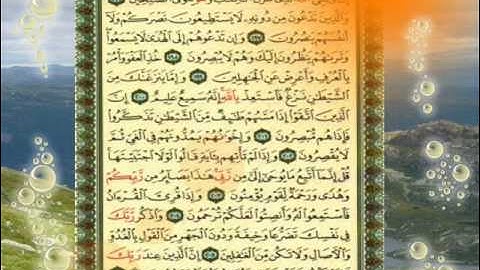 وَالَّذِينَ تَدْعُونَ مِن دُونِهِ لَا يَسْتَطِيعُونَ نَصْرَكُمْ وَلَا
أَنفُسَهُمْ يَنصُرُونَ ۝ وَإِن تَدْعُوهُمْ إِلَى الْهُدَىٰ لَا يَسْمَعُوا
وَتَرَىٰهُمْ يَنظُرُونَ إِلَيْكَ وَهُمْ لَا يُبْصِرُونَ ۝ خُذِ الْعَفْوَ وَأْمُرْ
بِالْعُرْفِ وَأَعْرِضْ عَنِ الْجَٰهِلِينَ ۝ وَإِمَّا يَنزَغَنَّكَ مِنَ
الشَّيْطَٰنِ نَزْغٌ فَاسْتَعِذْ بِاللَّهِ إِنَّهُ سَمِيعٌ عَلِيمٌ ۝ إِنَّ
الَّذِينَ اتَّقَوْا إِذَا مَسَّهُمْ طَٰٓئِفٌ مِّنَ الشَّيْطَٰنِ تَذَكَّرُوا
فَإِذَا هُم مُّبْصِرُونَ ۝ وَإِخْوَٰنُهُمْ يَمُدُّونَهُمْ فِي الْغَيِّ ثُمَّ
لَا يُقْصِرُونَ ۝ وَإِذَا لَمْ تَأْتِهِم بِـَٔايَةٍ قَالُوا لَوْلَا اجْتَبَيْتَهَا
قُلْ إِنَّمَا أَتَّبِعُ مَا يُوحَىٰ إِلَيَّ مِن رَّبِّي هَٰذَا بَصَائِرُ مِن رَّبِّكُمْ
وَهُدًى وَرَحْمَةٌ لِّقَوْمٍ يُؤْمِنُونَ ۝ وَإِذَا قُرِئَ الْقُرْءَانُ
فَاسْتَمِعُوا لَهُ وَأَنصِتُوا لَعَلَّكُمْ تُرْحَمُونَ ۝ وَاذْكُر رَّبَّكَ
فِي نَفْسِكَ تَضَرُّعًا وَخِيفَةً وَدُونَ الْجَهْرِ مِنَ الْقَوْلِ بِالْغُدُوِّ
وَالْءَاصَالِ وَلَا تَكُن مِّنَ الْغَٰفِلِينَ ۝ إِنَّ الَّذِينَ عِندَ رَبِّكَ